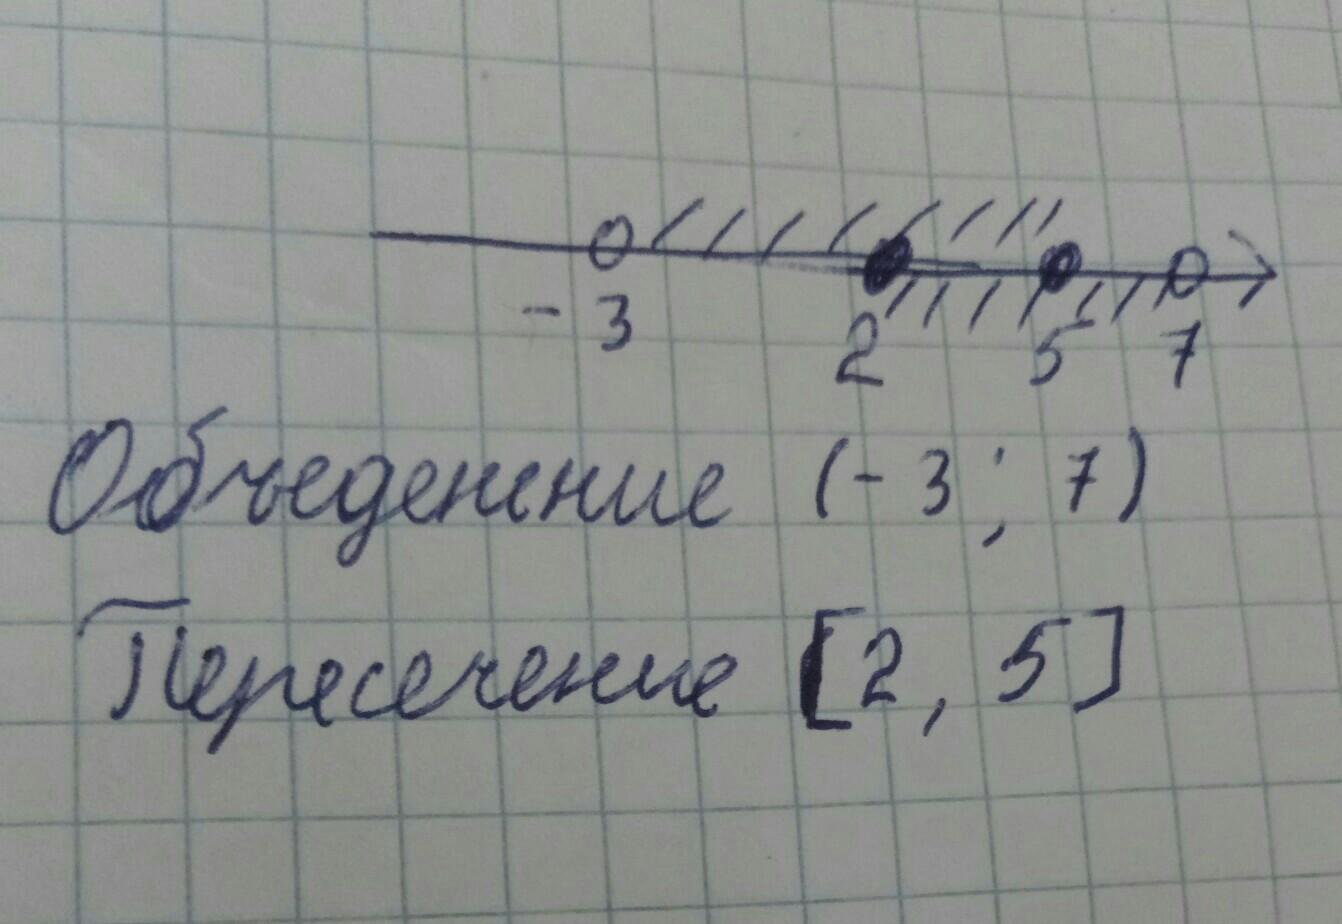 - 3 2 5 7
Объеденение (- 3 ; 7)
Пересечение [2, 5]